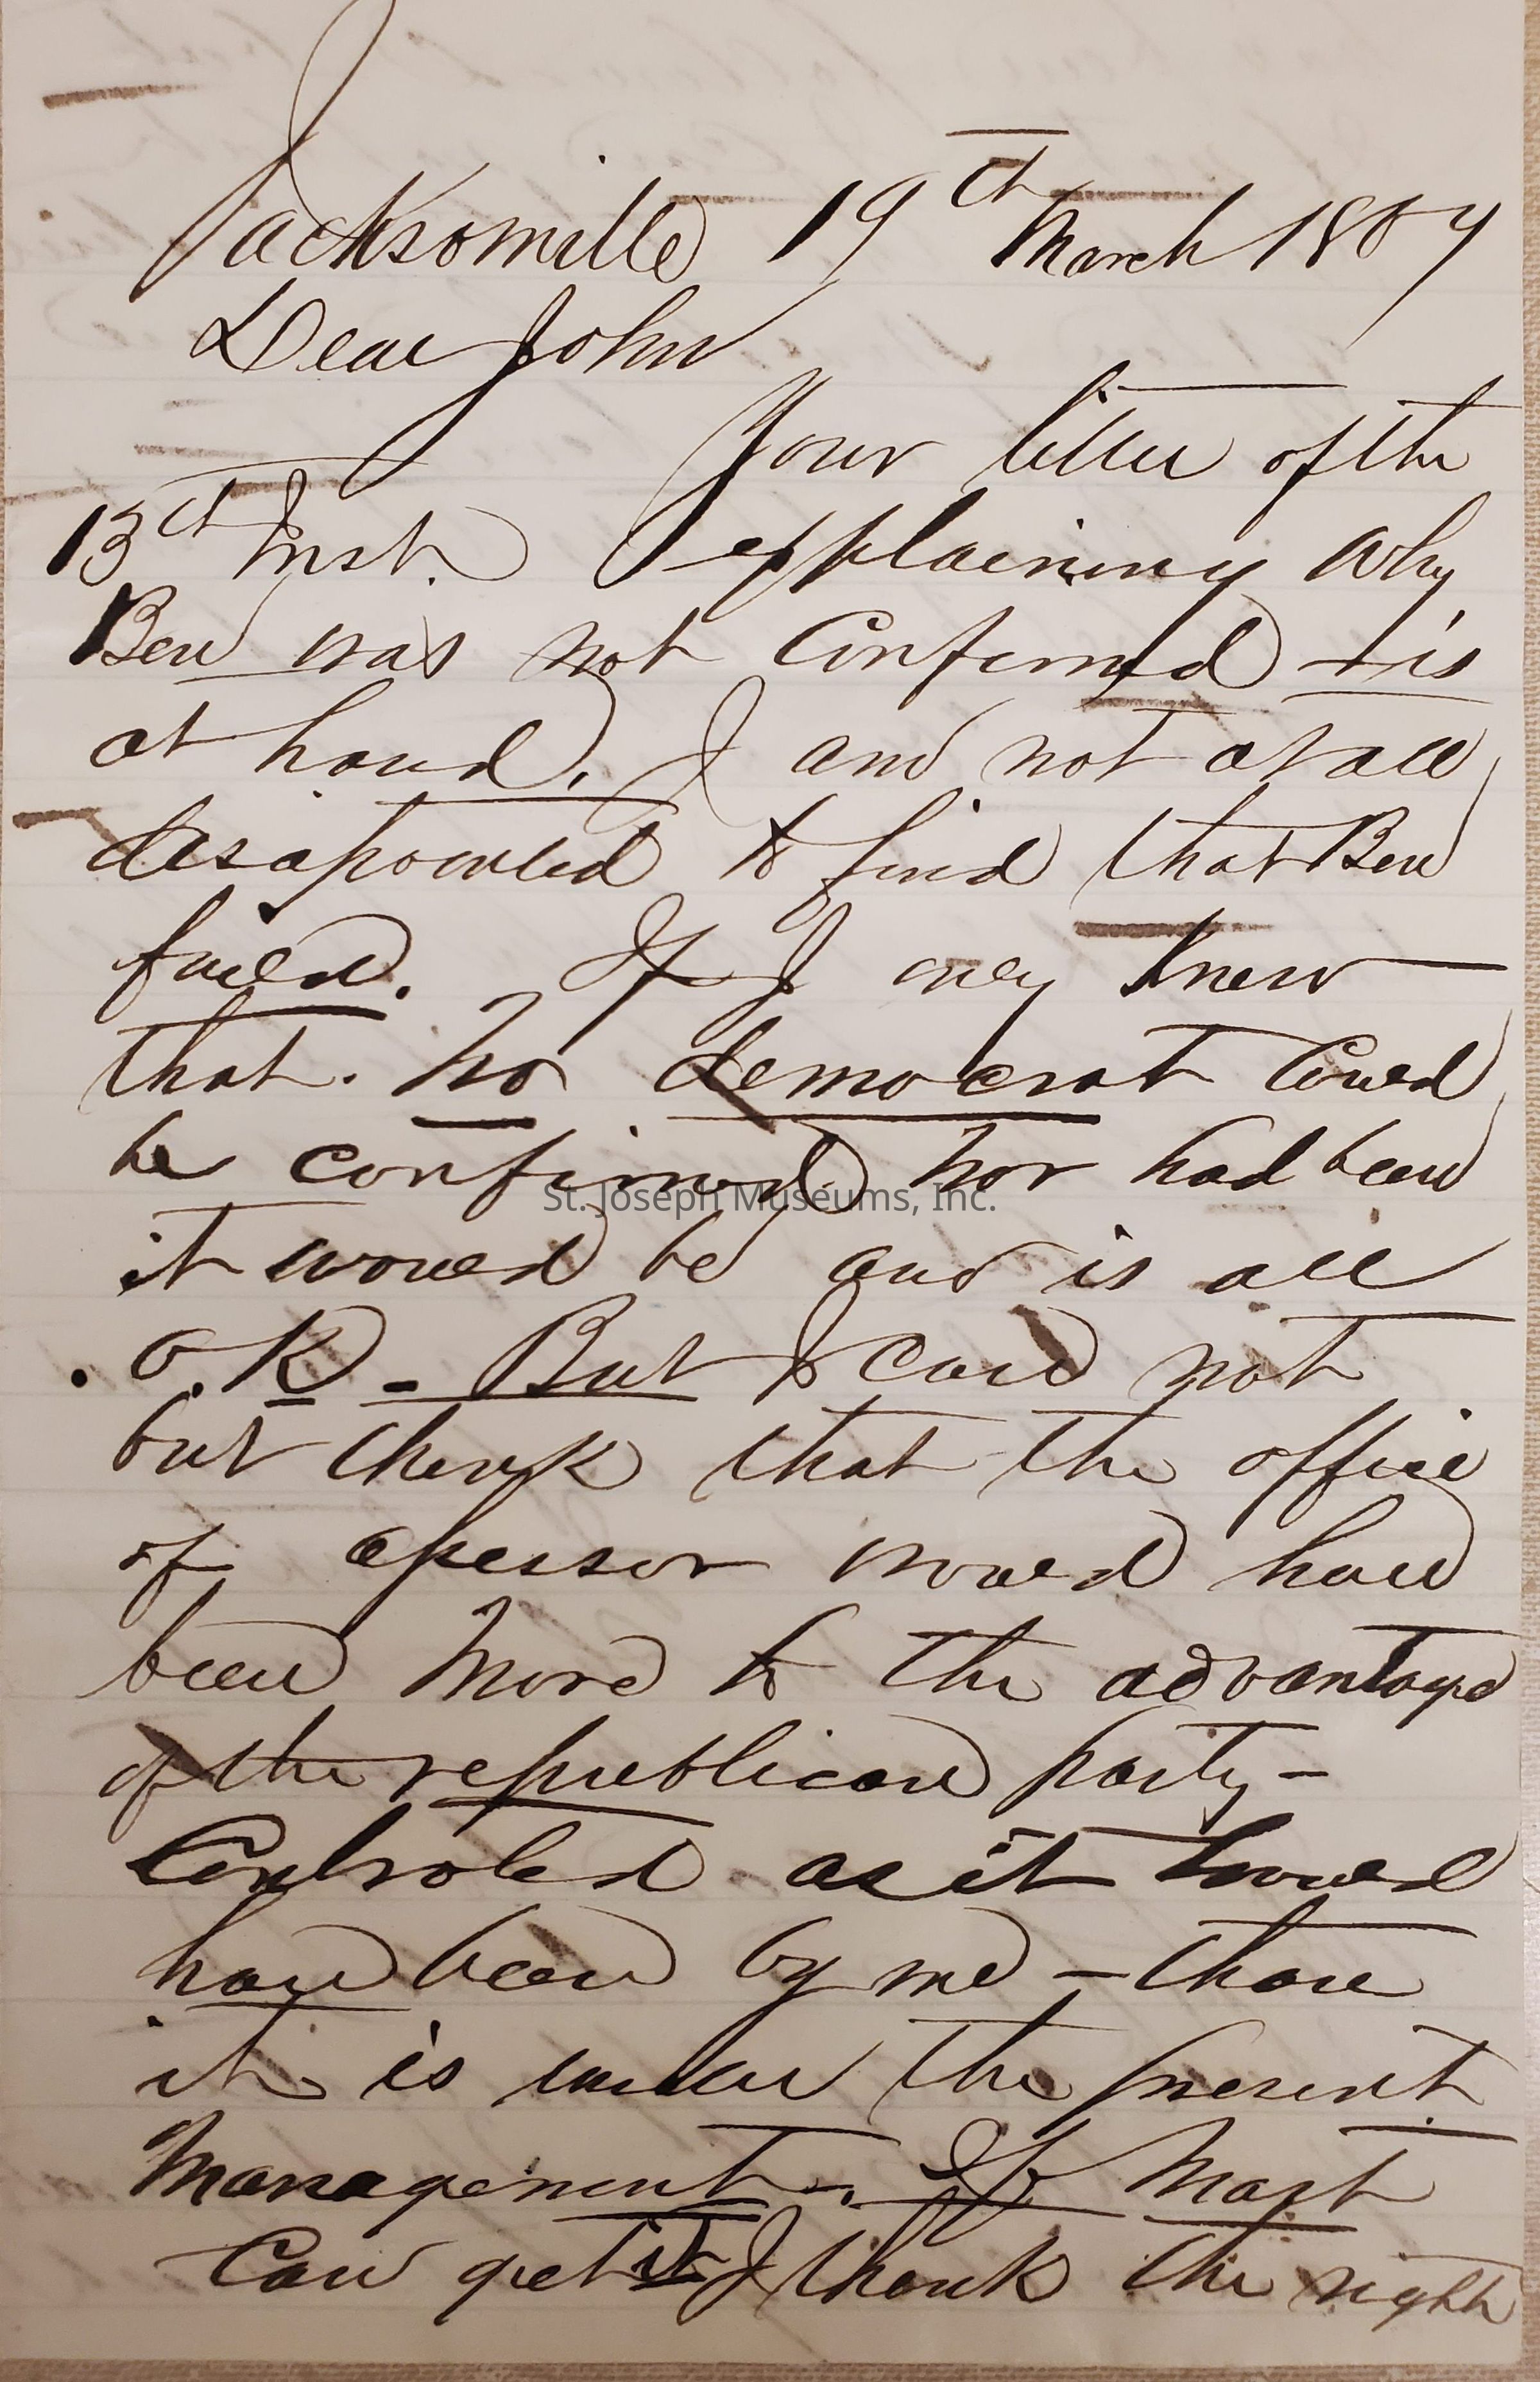 Jacksonville 19th March 1867
Dear John
Your letter of the
13th Inst. explaining why
Ben was not Confirmed - is
at hand. I am not at all
disapointed to find that Ben
failed. If I only knew
that. no democrat Could
be confirmed nor had been
it would be and is all
O.K. - But I can not
but think that the office
of assessor would have
been more to the advantage
of the republican party -
Controled as it would
have been by me - than
it is under the present
management -. If Mast
Can get it I think the right
St. Joseph Museums, Inc.